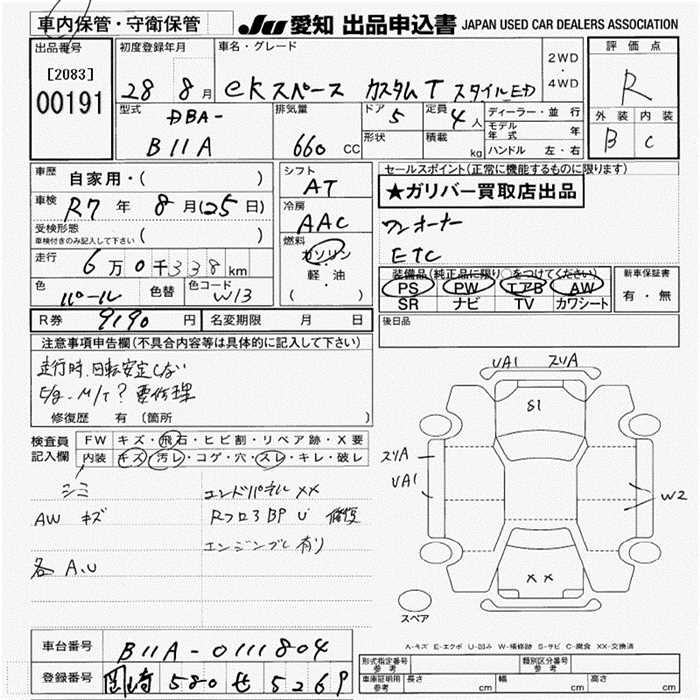 車内保管・守衛保管
JU 愛知 出品申込書 JAPAN USED CAR DEALERS ASSOCIATION
出品番号
[2083]
00191
初度登録年月
28 8月
車名・グレード
eKスペース カスタムT スタイルED
2WD
・
4WD
評価点
R
外装 内装
B C
型式
DBA-
B11A
排気量
660 CC
ドア
5
形状
定員
4人
積載
kg
ディーラー・並行
モデル年式 年
ハンドル 左・右
車歴
自家用・( )
車検
R7年 8月(25日)
受検形態
車検付きのみ記入して下さい ( )
走行
6万0千338km
色
パール
色替
色コード
W13
シフト
AT
冷房
AAC
燃料
ガソリン
・
軽油
( )
セールスポイント(正常に機能するものに限ります)
★ガリバー買取店出品
ワンオーナー
ETC
装備品(純正品に限り○をつけてください)
PS PW エアB AW
SR ナビ TV カワシート
新車保証書
有・無
R券 9190 円
名変期限 月 日
後日品
注意事項申告欄(不具合内容等は具体的に記入して下さい)
走行時、回転安定しない
E/g・M/T? 要修理
修復歴 有 〔箇所 〕
検査員記入欄
FW キズ・飛石・ヒビ割・リペア跡・X要
内装 キズ・汚レ・コゲ・穴・スレ・キレ・破レ
シミ
AW キズ
各A.U
エンドパネルXX
Rフロア BP U 修復
エンジンブレ有り
VA1 スリA
S1
スリA
VA1
W2
XX
スペア
A-キズ E-エクボ U-凹み W-補修跡 S-サビ C-腐食 XX-交換済
車台番号 B11A-0111804
登録番号 岡崎 580 せ 5269
形式指定番号
参考
類別区分番号
参考
車庫証明用
参考
長さ cm
幅 cm
高さ cm